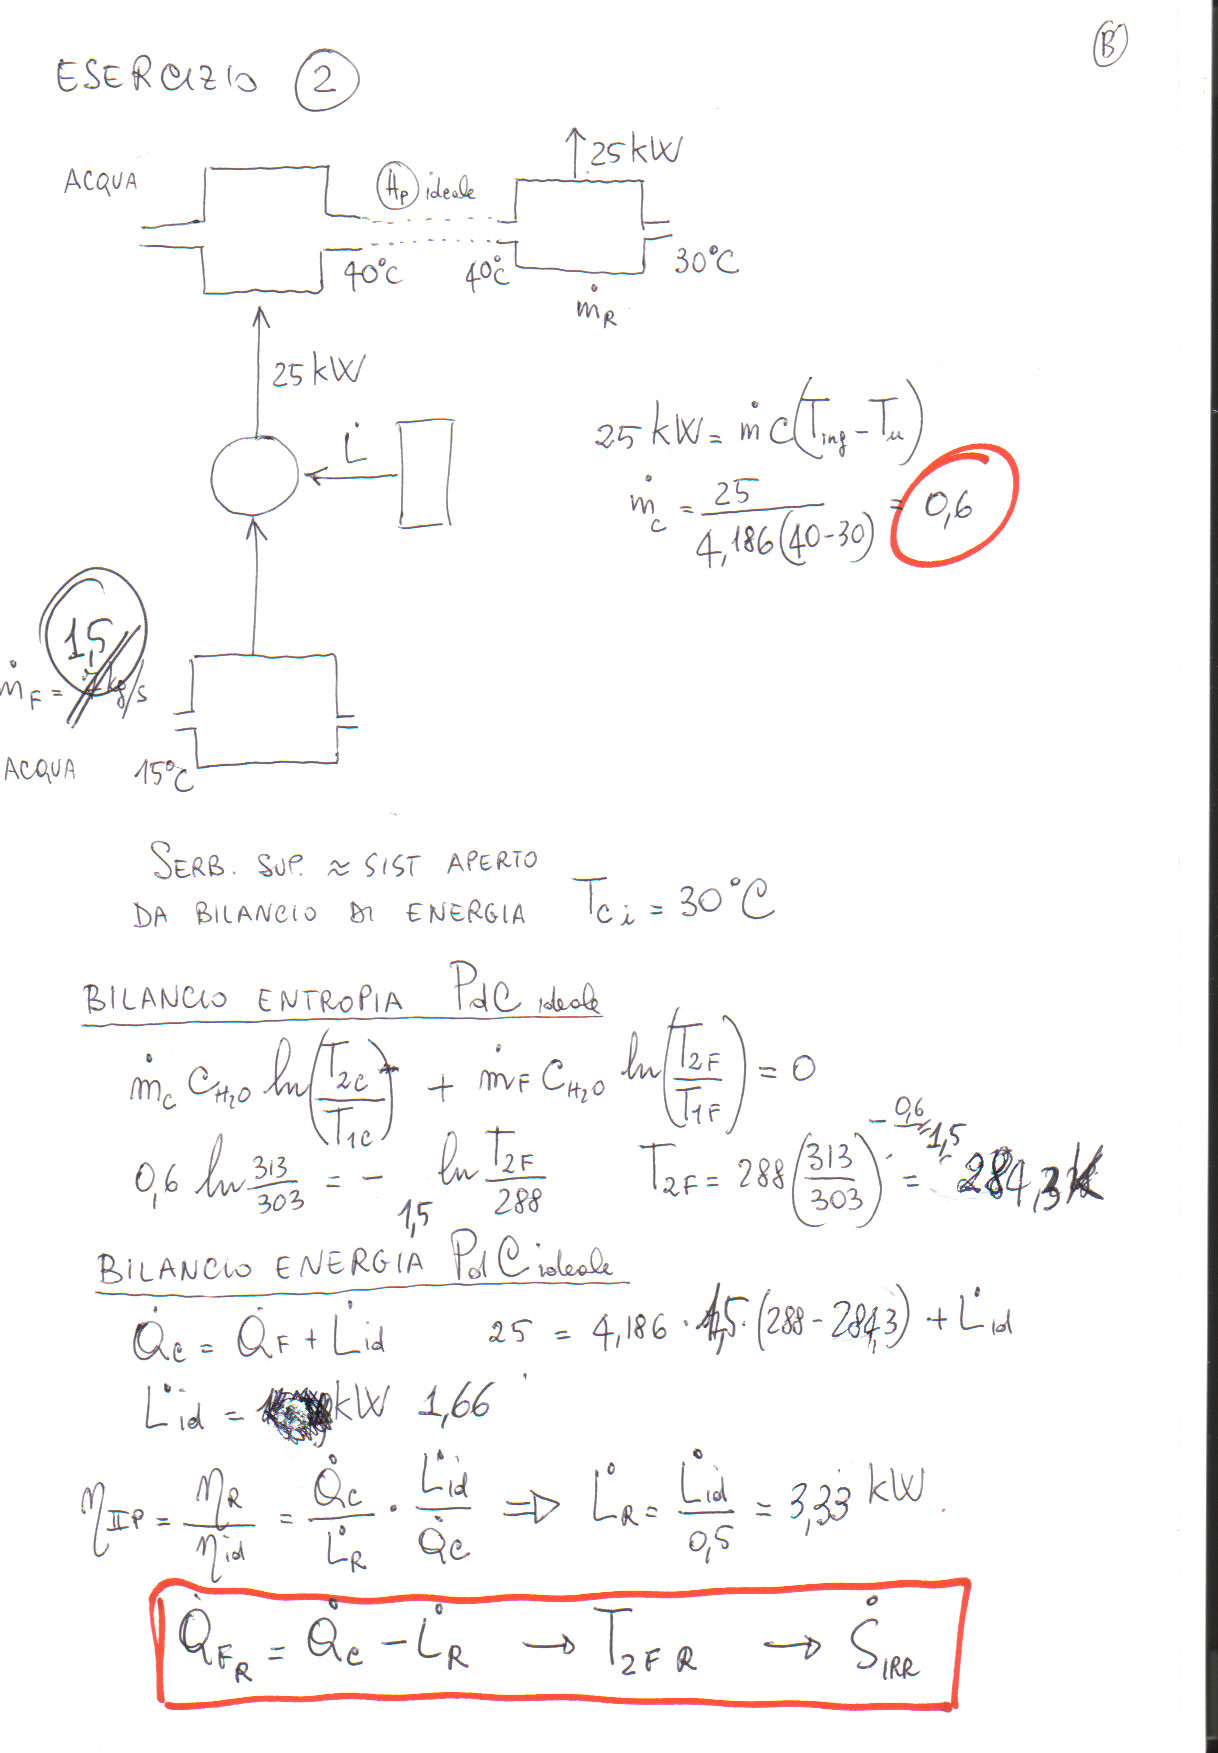 B
ESERCIZIO 2
25 kW
ACQUA
Hp ideale
40°C
40°C
30°C
ṁ_R
25 kW
L̇
25 kW = ṁ C (T_ing - T_u)
ṁ_c = 25 / 4,186 (40-30) = 0,6
1,5
ṁ_F = kg/s
ACQUA
15°C
SERB. SUP. ≈ SIST APERTO
DA BILANCIO DI ENERGIA T_ci = 30°C
BILANCIO ENTROPIA PdC ideale
ṁ_c C_H2O ln (T_2C / T_1C) + ṁ_F C_H2O ln (T_2F / T_1F) = 0
0,6 ln 313/303 = - 1,5 ln T_2F/288
T_2F = 288 (313/303)^(-0,6/1,5) = 284,3 K
BILANCIO ENERGIA PdC ideale
Q̇_c = Q̇_F + L̇_id
25 = 4,186 · 1,5 · (288 - 284,3) + L̇_id
L̇_id = kW 1,66
η_IIP = η_R / η_id = Q̇_c / L̇_R · L̇_id / Q̇_c ⇒ L̇_R = L̇_id / 0,5 = 3,33 kW
Q̇_FR = Q̇_c - L̇_R → T_2FR → Ṡ_IRR